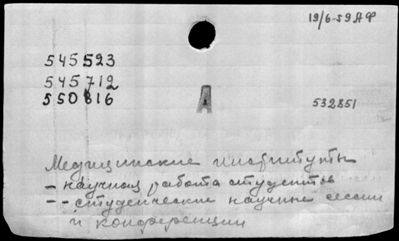 19/6-59 АФ
545523
545712
550816
А
532851
Медицинские институты
- научная работа студентов
- - студенческие научные сессии
и конференции